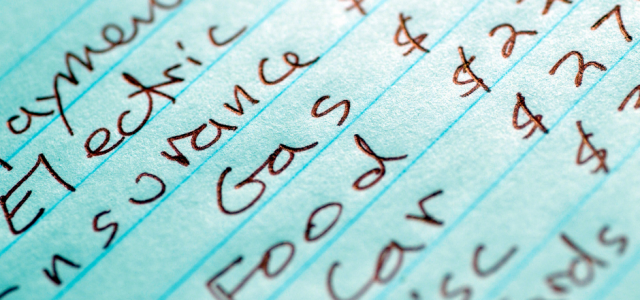 ayment $
Electric $ 2
Insurance $ 27
Gas $ 2
Food $
Car
isc
ds